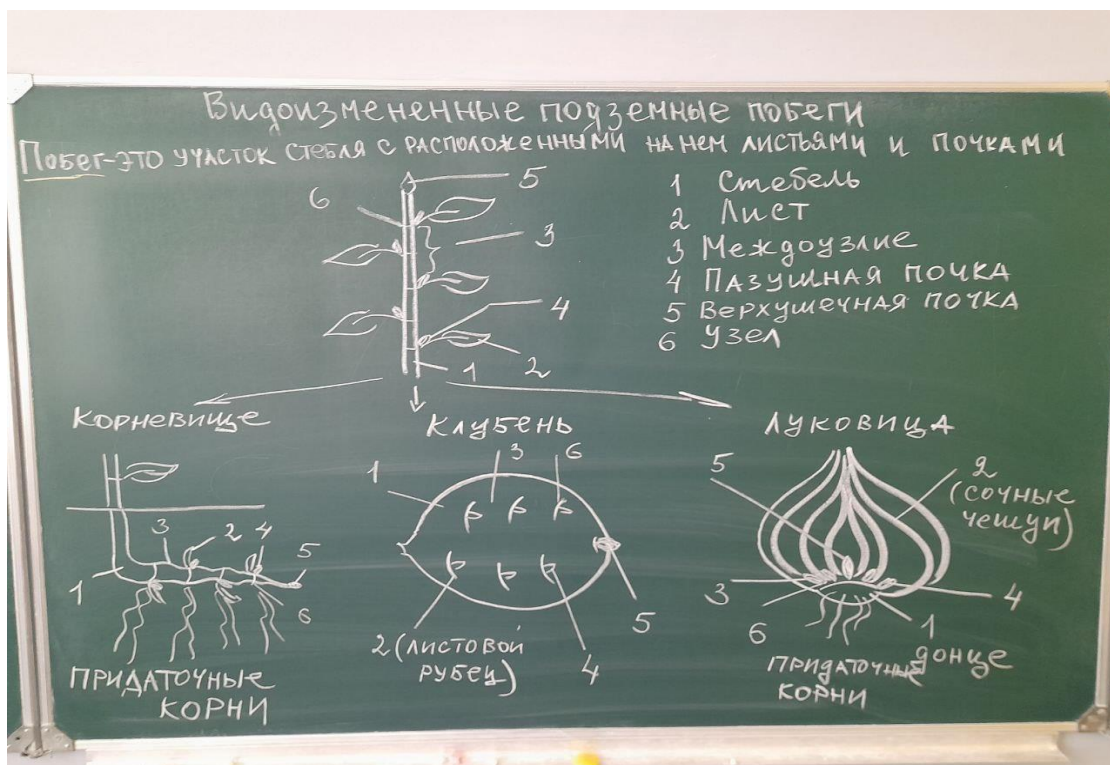 Видоизмененные подземные побеги
Побег-это участок стебля с расположенными на нем листьями и почками
5
6
3
4
1
2
1 Стебель
2 Лист
3 Междоузлие
4 Пазушная почка
5 Верхушечная почка
6 Узел
Корневище
3
2
4
5
1
6
Придаточные
корни
Клубень
3
6
1
5
2 (листовой
рубец)
4
Луковица
5
2
(сочные
чешуи)
3
4
6
1
донце
Придаточные
корни